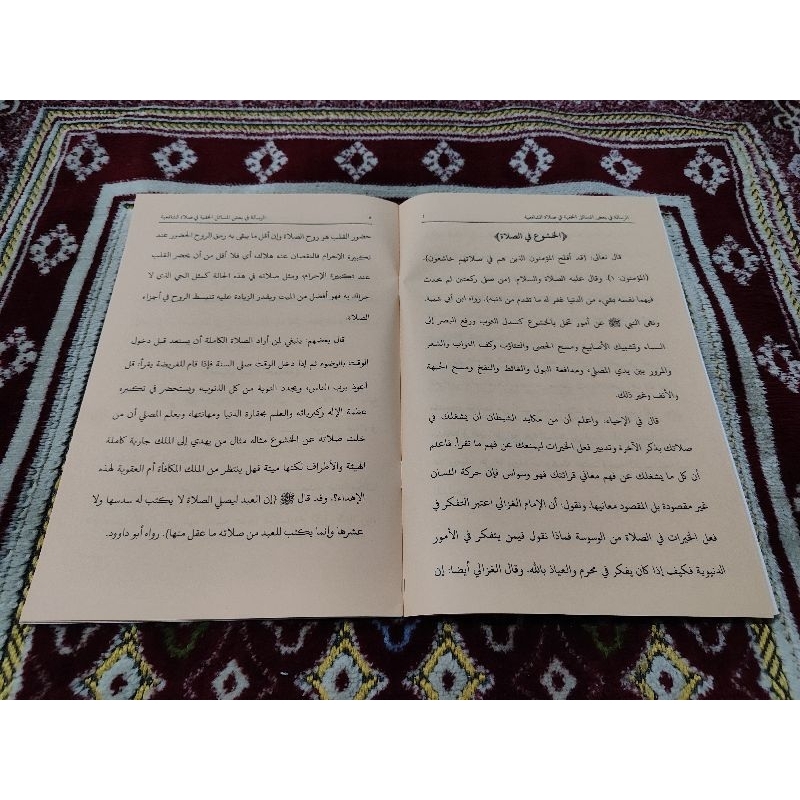 الرسالة في بعض المسائل الخفية في صلاة الشافعية
٤
﴿الخشوع في الصلاة﴾
قال تعالى: (قد أفلح المؤمنون الذين هم في صلاتهم خاشعون).
(المؤمنون: ١). وقال عليه الصلاة والسلام: (من صلى ركعتين لم يحدث
فيهما نفسه بشيء من الدنيا غفر له ما تقدم من ذنبه). رواه ابن أبي شيبة.
ونهى النبي ﷺ عن أمور تخل بالخشوع كسدل الثوب ورفع البصر إلى
السماء وتشبيك الأصابع ومسح الحصى والتثاؤب وكف الثوب والشعر
والمرور بين يدي المصلي ومدافعة البول والغائط والنفخ ومسح الجبهة
والأنف وغير ذلك.
قال في الإحياء: واعلم أن من مكايد الشيطان أن يشغلك في
صلاتك بذكر الآخرة وتدبير فعل الخيرات ليمنعك عن فهم ما تقرأ، فاعلم
أن كل ما يشغلك عن فهم معاني قرائتك فهو وسواس فإن حركة اللسان
غير مقصودة بل المقصود معانيها. ونقول: أن الإمام الغزالي اعتبر التفكر في
فعل الخيرات في الصلاة من الوسوسة فماذا نقول فيمن يتفكر في الأمور
الدنيوية فكيف إذا كان يفكر في محرم والعياذ بالله. وقال الغزالي أيضا: إن
الرسالة في بعض المسائل الخفية في صلاة الشافعية
٥
حضور القلب هو روح الصلاة وإن أقل ما يبقى به رمق الروح الحضور عند
تكبيرة الإحرام فالنقصان عنه هلاك، أي فلا أقل من أن يحضر القلب
عند تكبيرة الإحرام، ومثل صلاته في هذه الحالة كمثل الحي الذي لا
حراك به فهو أفضل من الميت وبقدر الزيادة عليه تنبسط الروح في أجزاء
الصلاة.
قال بعضهم: ينبغي لمن أراد الصلاة الكاملة أن يستعد قبل دخول
الوقت بالوضوء ثم إذا دخل الوقت صلى السنة فإذا قام للفريضة يقرأ: قل
أعوذ برب الناس، ويجدد التوبة من كل الذنوب، ويستحضر في تكبيره
عظمة الإله وكبريائه والعلم بحقارة الدنيا ومهانتها، ويعلم المصلي أن من
خلت صلاته عن الخشوع مثاله مثال من يهدي إلى الملك جارية كاملة
الهيئة والأطراف لكنها ميتة فهل ينتظر من الملك المكافأة أم العقوبة لهذه
الإهداء؟، وقد قال ﷺ (إن العبد ليصلي الصلاة لا يكتب له سدسها ولا
عشرها وإنما يكتب للعبد من صلاته ما عقل منها). رواه أبو داوود.